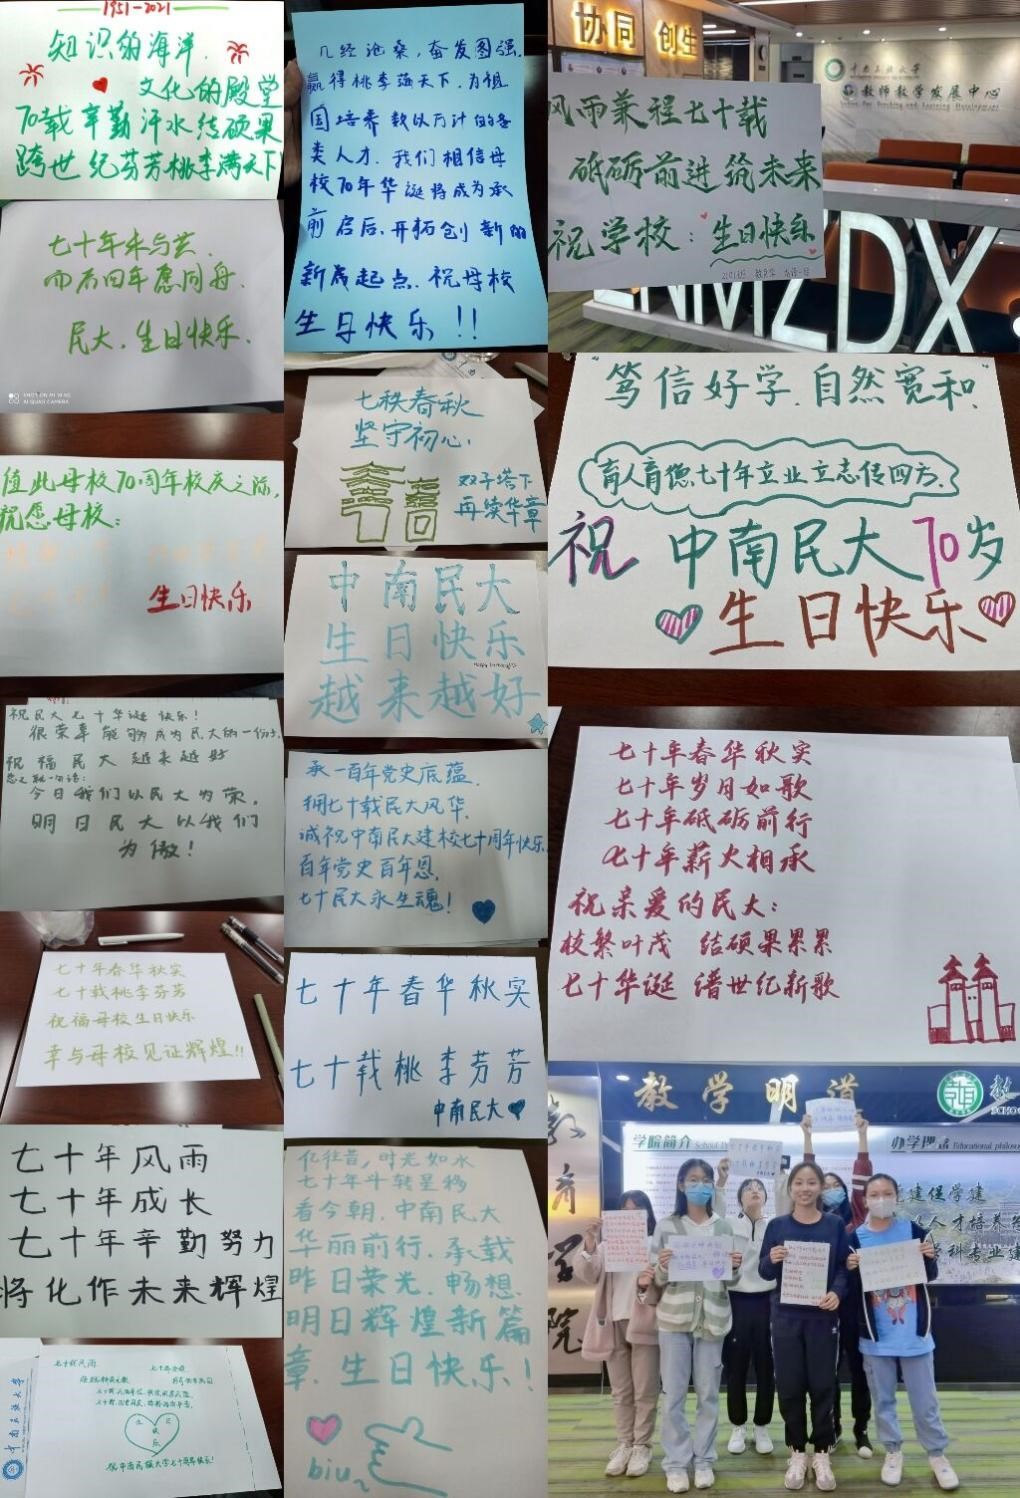 1951-2021
知识的海洋
文化的殿堂
70载辛勤汗水结硕果
跨世纪芬芳桃李满天下
七十年未与共,
而后四年愿同舟.
民大,生日快乐.
值此母校70周年校庆之际,
祝愿母校:
生日快乐
祝民大七十华诞快乐!
很荣幸能够成为民大的一份子,
祝福民大越来越好
今日我们以民大为荣,
明日民大以我们
为傲!
七十年春华秋实
七十载桃李芬芳
祝福母校生日快乐
幸与母校见证辉煌!!
七十年风雨
七十年成长
七十年辛勤努力
将化作未来辉煌
七十载风雨
祝中南民族大学七十周年快乐!
几经沧桑,奋发图强.
赢得桃李满天下,为祖
国培养数以万计的各
类人才.我们相信母
校70年华诞将成为承
前启后、开拓创新的
新成起点.祝母校
生日快乐!!
七秩春秋
坚守初心,
双子塔下
再续华章
中南民大
生日快乐
越来越好
承一百年党史底蕴.
拥七十载民大风华.
诚祝中南民大建校七十周年快乐.
百年党史百年恩,
七十民大永生魂!
七十年春华秋实
七十载桃李芬芳
中南民大
忆往昔,时光如水
七十年斗转星移
看今朝,中南民大
华丽前行,承载
昨日荣光,畅想
明日辉煌新篇
章,生日快乐!
biu~
协同 创生
中南民族大学
教师教学发展中心
风雨兼程七十载
砥砺前进筑未来
祝学校:生日快乐
ZNMZDX
"笃信好学,自然宽和"
育人育德七十年立业立志传四方.
祝中南民大70岁
生日快乐
七十年春华秋实
七十年岁月如歌
七十年砥砺前行
七十年薪火相承
祝亲爱的民大:
枝繁叶茂 结硕果累累
七十华诞 谱世纪新歌
教学明道
教育学院
学院简介
办学理念 Educational philosophy
党建促学建